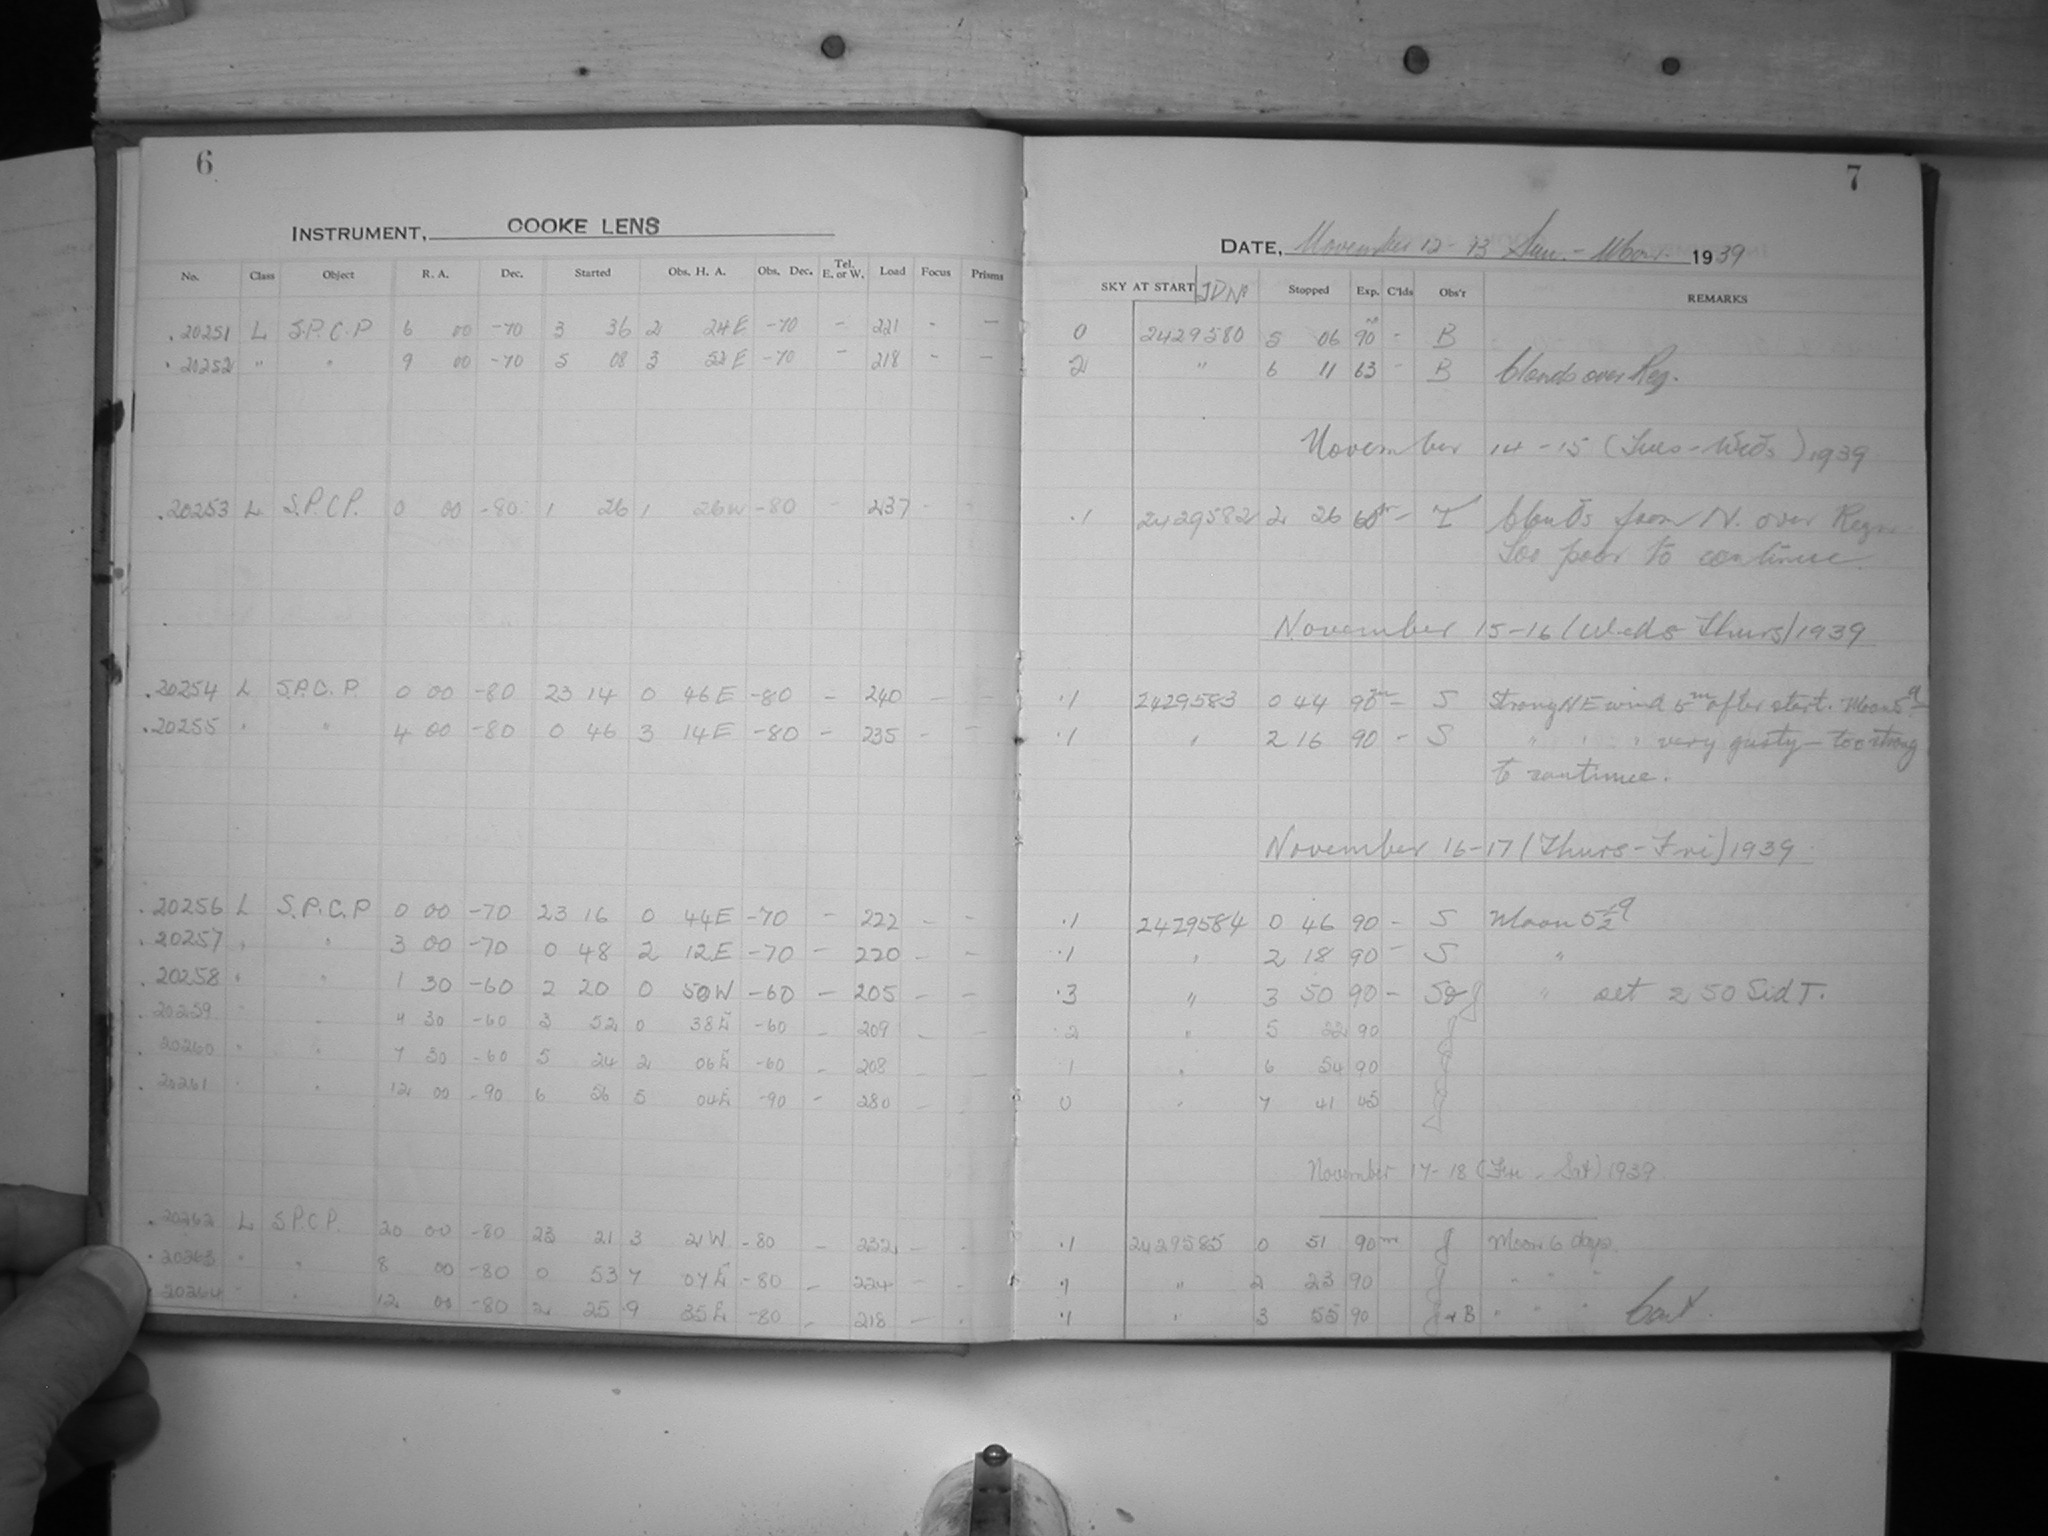 6
INSTRUMENT, COOKE LENS
No. Class Object R. A. Dec. Started Obs. H. A. Obs. Dec. Tel. E. or W. Load Focus Prisms
.20251 L S.P.C.P 6 00 -70 3 36 2 24E -70 - 221 - -
.20252 " " 9 00 -70 5 08 3 52E -70 - 218 - -
.20253 L S.P.C.P. 0 00 -80 1 26 1 26W -80 - 237 - -
.20254 L S.P.C.P. 0 00 -80 23 14 0 46E -80 - 240 - -
.20255 " " 4 00 -80 0 46 3 14E -80 - 235 - -
.20256 L S.P.C.P 0 00 -70 23 16 0 44E -70 - 222 - -
.20257 " " 3 00 -70 0 48 2 12E -70 - 220 - -
.20258 " " 1 30 -60 2 20 0 50W -60 - 205 - -
.20259 " " 4 30 -60 3 52 0 38E -60 - 209 - -
.20260 " " 7 30 -60 5 24 2 06E -60 - 208 - -
.20261 " " 12 00 -90 6 56 5 04E -90 - 280 - -
.20262 L S.P.C.P. 20 00 -80 23 21 3 21W -80 - 232 - -
.20263 " " 8 00 -80 0 53 7 07E -80 - 224 - -
.20264 " " 12 00 -80 2 25 9 35E -80 - 218 - -
7
DATE, November 12-13 Sun.-Mon. 1939
SKY AT START JD No Stopped Exp. C'lds Obs'r REMARKS
0 2429580 5 06 90m - B
2 " 6 11 63 - B Clouds over Reg.
November 14-15 (Tues-Weds) 1939
.1 2429582 2 26 60m - T Clouds from N. over Regn
Too poor to continue.
November 15-16 (Weds Thurs) 1939
.1 2429583 0 44 90m - S Strong NE wind 5m after start. Moon 5d
.1 " 2 16 90 - S " " " very gusty - too strong
to continue.
November 16-17 (Thurs-Fri) 1939
.1 2429584 0 46 90 - S Moon 5½d
.1 " 2 18 90 - S "
.3 " 3 50 90 - S&J " set 2 50 Sid T.
.2 " 5 22 90 J
1 " 6 54 90 J
0 " 7 41 45 J
November 17-18 (Fri - Sat) 1939.
.1 2429585 0 51 90m J Moon 6 days.
.1 " 2 23 90 J " " "
.1 " 3 55 90 J & B " " " Cont.